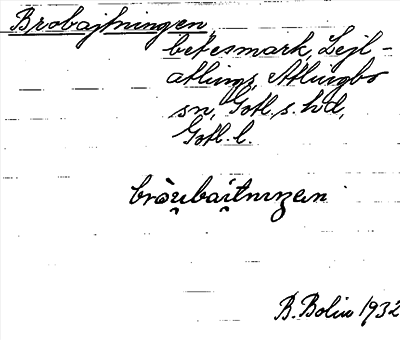 Brobajtningen
betesmark, Lejl-
atlings, Atlingbo
sn, Gotl. s. hd,
Gotl. l.
bròu̯bai̯tnıŋen
B. Bolin 1932